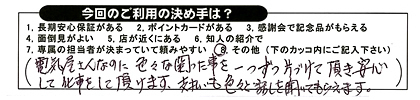 今回のご利用の決め手は？
1、長期安心保証がある 2、ポイントカードがある 3、感謝会で記念品がもらえる
4、面倒見がよい 5、店が近くにある 6、知人の紹介で
7、専属の担当者が決まっていて頼みやすい 8、その他（下のカッコ内にご記入下さい）
（電気屋さんなのに色々な困った事を一つずつ片づけて頂き安心
して仕事をして頂けます、支払いも色々と話しを聞いてもらえます。）